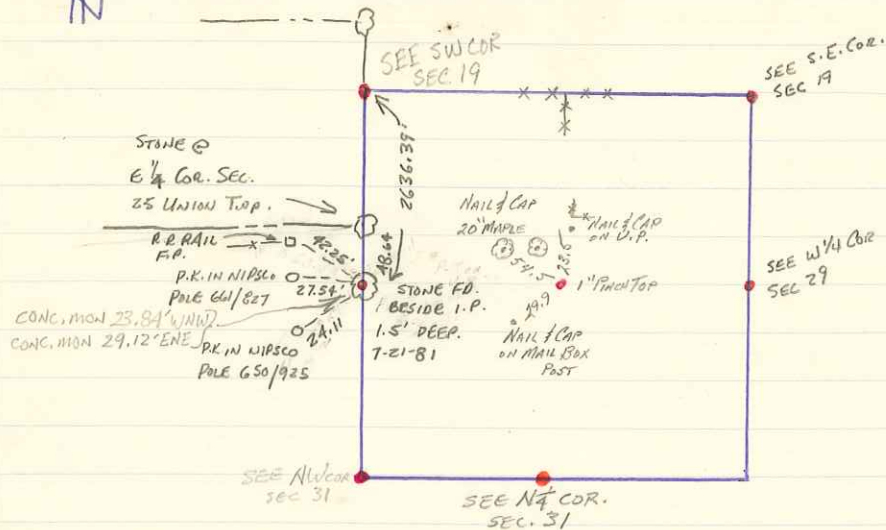 IN
SEE SW COR
SEC. 19
SEE S.E. COR.
SEC 19
STONE @
E 1/4 COR. SEC.
25 UNION TWP.
2636.39'
R.R. RAIL
F.P.
42.25'
48.64
P.K. IN NIPSCO
POLE 661/827
27.54'
CONC. MON 23.84' WNW
CONC. MON 29.12' ENE
24.11
P.K. IN NIPSCO
POLE 650/925
STONE FD.
BESIDE I.P.
1.5' DEEP.
7-21-81
NAIL & CAP
20" MAPLE
54.5
NAIL & CAP
ON U.P.
23.6
1" PINCH TOP
NAIL & CAP
ON MAIL BOX
POST
SEE W 1/4 COR
SEC 29
SEE NW COR
SEC 31
SEE N 1/4 COR.
SEC. 31